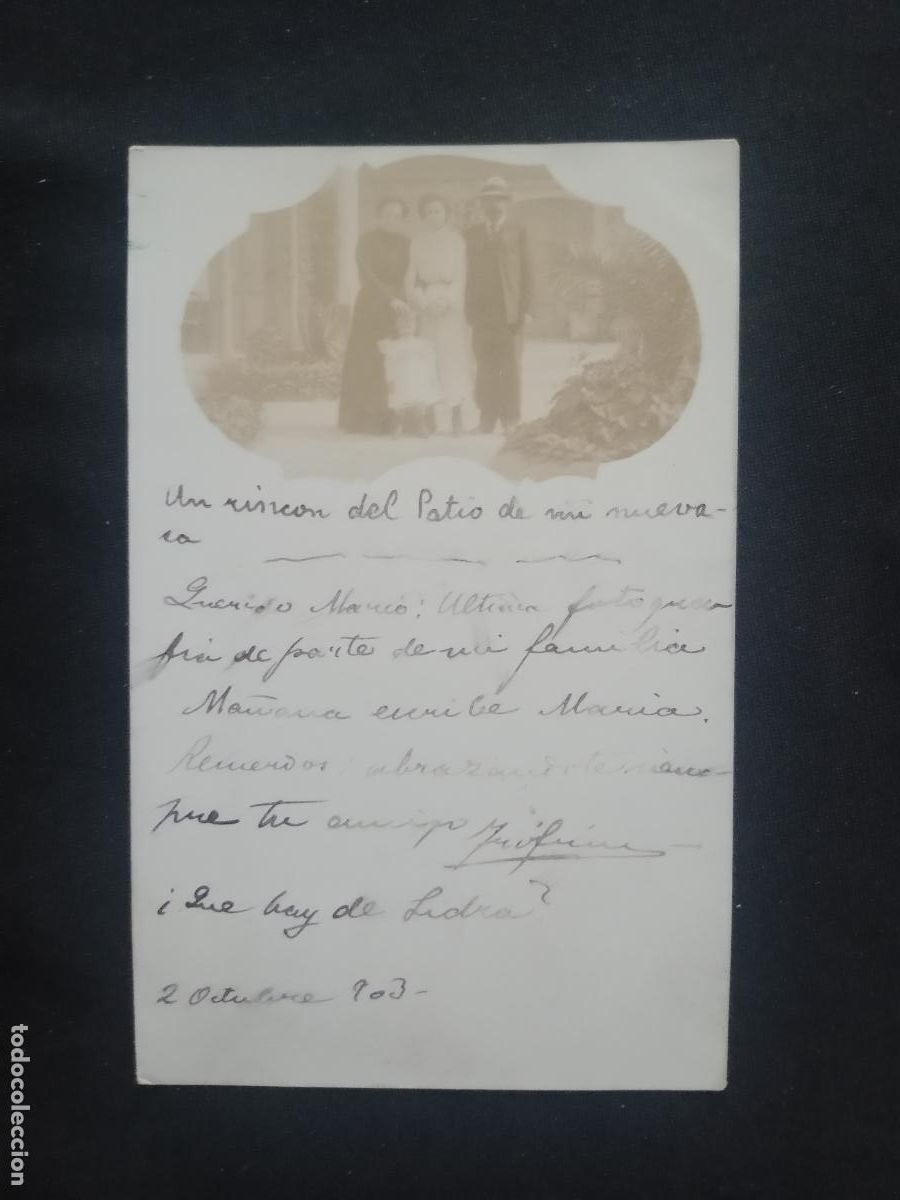 Un rincon del Patio de mi nueva-
sa
Querido Mario: Ultima fotogra
fia de parte de mi familia
Mañana escribe Maria.
Recuerdos: abrazandote siem-
pre tu amigo
¿Que hay de
2 Octubre 903-
todocoleccion